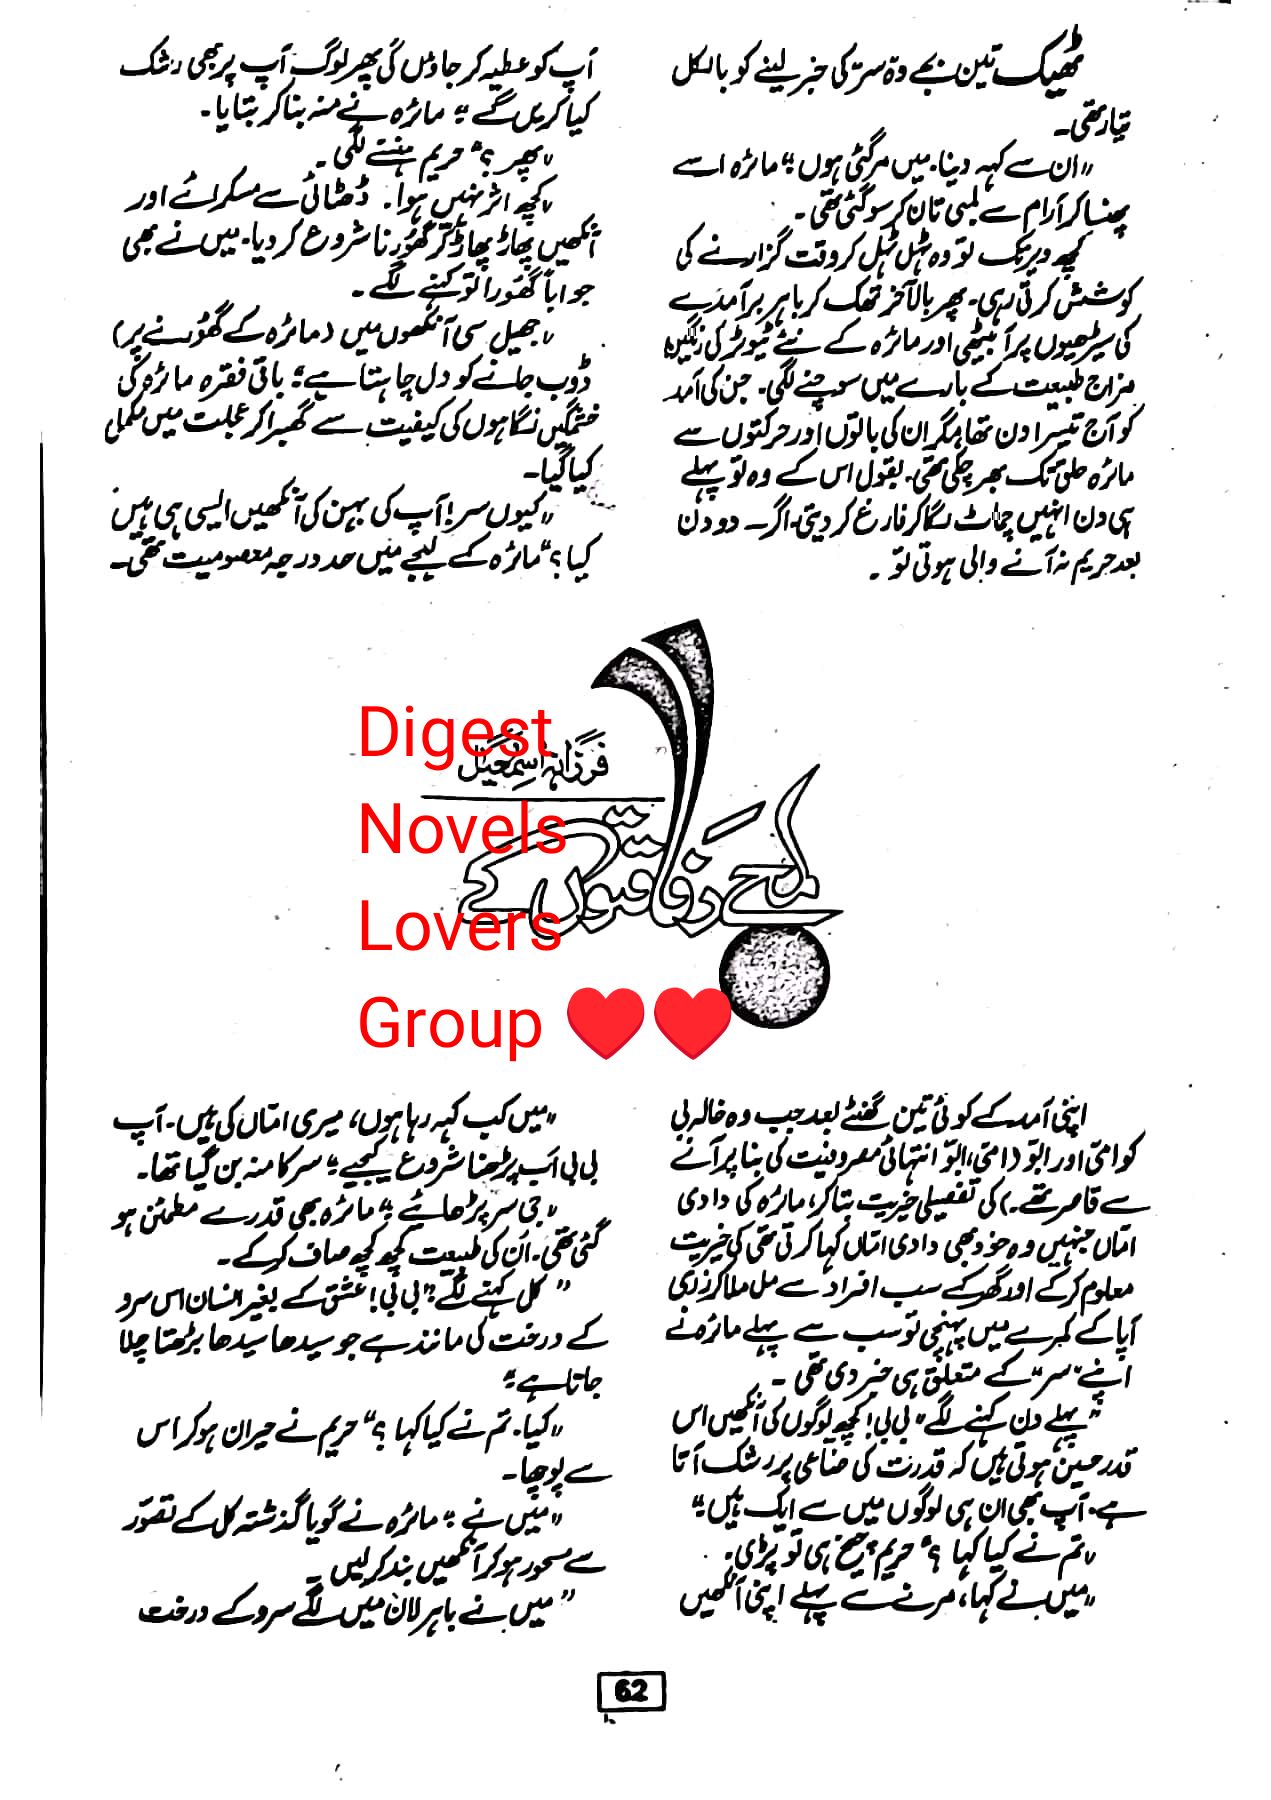 ٹھیک تین بجے وہ سر کی خبر لینے کو بالکل
تیار تھی۔
"ان سے کہہ دینا۔ میں مر گئی ہوں" مائرہ اسے
پھنسا کر آرام سے لمبی تان کر سو گئی تھی۔
کچھ دیر تک تو وہ ٹہل ٹہل کر وقت گزارنے کی
کوشش کرتی رہی۔ پھر بالآخر تھک کر باہر برآمدے
کی سیڑھیوں پر آ بیٹھی اور مائرہ کے نئے ٹیوٹر کی رنگین
مزاج طبیعت کے بارے میں سوچنے لگی۔ جن کی آمد
کو آج تیسرا دن تھا مگر ان کی باتوں اور حرکتوں سے
مائرہ حلق تک بھر چکی تھی۔ بقول اس کے وہ تو پہلے
ہی دن انہیں چماٹ لگا کر فارغ کر دیتی۔ اگر دو دن
بعد حریم نہ آنے والی ہوتی تو۔
فرزانہ اسمٰعیل
لمحے رفاقتوں کے
اپنی آمد کے کوئی تین گھنٹے بعد جب وہ خالہ بی
کو امی اور ابو (امی، ابو انتہائی مصروفیت کی بنا پر آنے
سے قاصر تھے۔) کی تفصیلی خیریت بتا کر، مائرہ کی دادی
اماں جنہیں وہ خود بھی دادی اماں کہا کرتی تھی کی خیریت
معلوم کر کے اور گھر کے سب افراد سے مل ملا کر زری
آپا کے کمرے میں پہنچی تو سب سے پہلے مائرہ نے
اپنے "سر" کے متعلق ہی خبر دی تھی۔
"پہلے دن کہنے لگے" بی بی! کچھ لوگوں کی آنکھیں اس
قدر حسین ہوتی ہیں کہ قدرت کی صناعی پر رشک آتا
ہے۔ آپ بھی ان ہی لوگوں میں سے ایک ہیں"
"تم نے کیا کہا؟" حریم چیخ ہی تو پڑی۔
"میں نے کہا، مرنے سے پہلے اپنی آنکھیں
آپ کو عطیہ کر جاؤں گی پھر لوگ آپ پر بھی رشک
کیا کریں گے" مائرہ نے منہ بنا کر بتایا۔
"پھر؟" حریم ہنسنے لگی۔
"کچھ اثر نہیں ہوا۔ ڈھٹائی سے مسکرائے اور
آنکھیں پھاڑ پھاڑ کر گھورنا شروع کر دیا۔ میں نے بھی
جواباً گھورا تو کہنے لگے۔
"جھیل سی آنکھوں میں (مائرہ کے گھورنے پر)
ڈوب جانے کو دل چاہتا ہے" باقی فقرہ مائرہ کی
خشمگیں نگاہوں کی کیفیت سے گھبرا کر عجلت میں مکمل
کیا گیا۔
"کیوں سر! آپ کی بہن کی آنکھیں ایسی ہی ہیں
کیا؟" مائرہ کے لہجے میں حد درجہ معصومیت تھی۔
"میں کب کہہ رہا ہوں، میری اماں کی ہیں۔ آپ
بی بی اب پڑھنا شروع کیجیے" سر کا منہ بن گیا تھا۔
"جی سر پڑھائیے" مائرہ بھی قدرے مطمئن ہو
گئی تھی۔ اُن کی طبیعت کچھ کچھ صاف کر کے۔
"کل کہنے لگے" بی بی! عشق کے بغیر انسان اس سرو
کے درخت کی مانند ہے جو سیدھا سیدھا بڑھتا چلا
جاتا ہے"
"کیا۔ تم نے کیا کہا؟" حریم نے حیران ہو کر اس
سے پوچھا۔
"میں نے" مائرہ نے گویا گذشتہ کل کے تصور
سے مسحور ہو کر آنکھیں بند کر لیں۔
"میں نے باہر لان میں لگے سرو کے درخت
Digest
Novels
Lovers
Group ❤️❤️
62